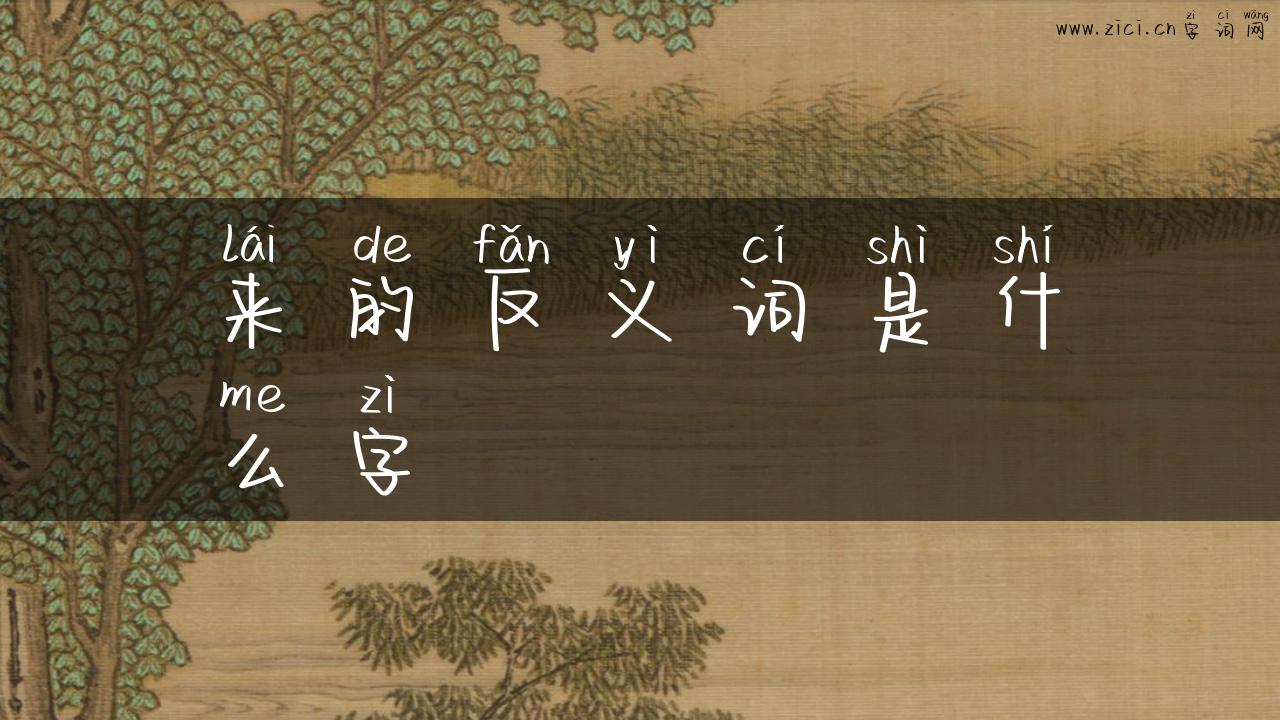 zì cí wǎng
www.zici.cn字词网
lái de fǎn yì cí shì shí
来的反义词是什
me zì
么字